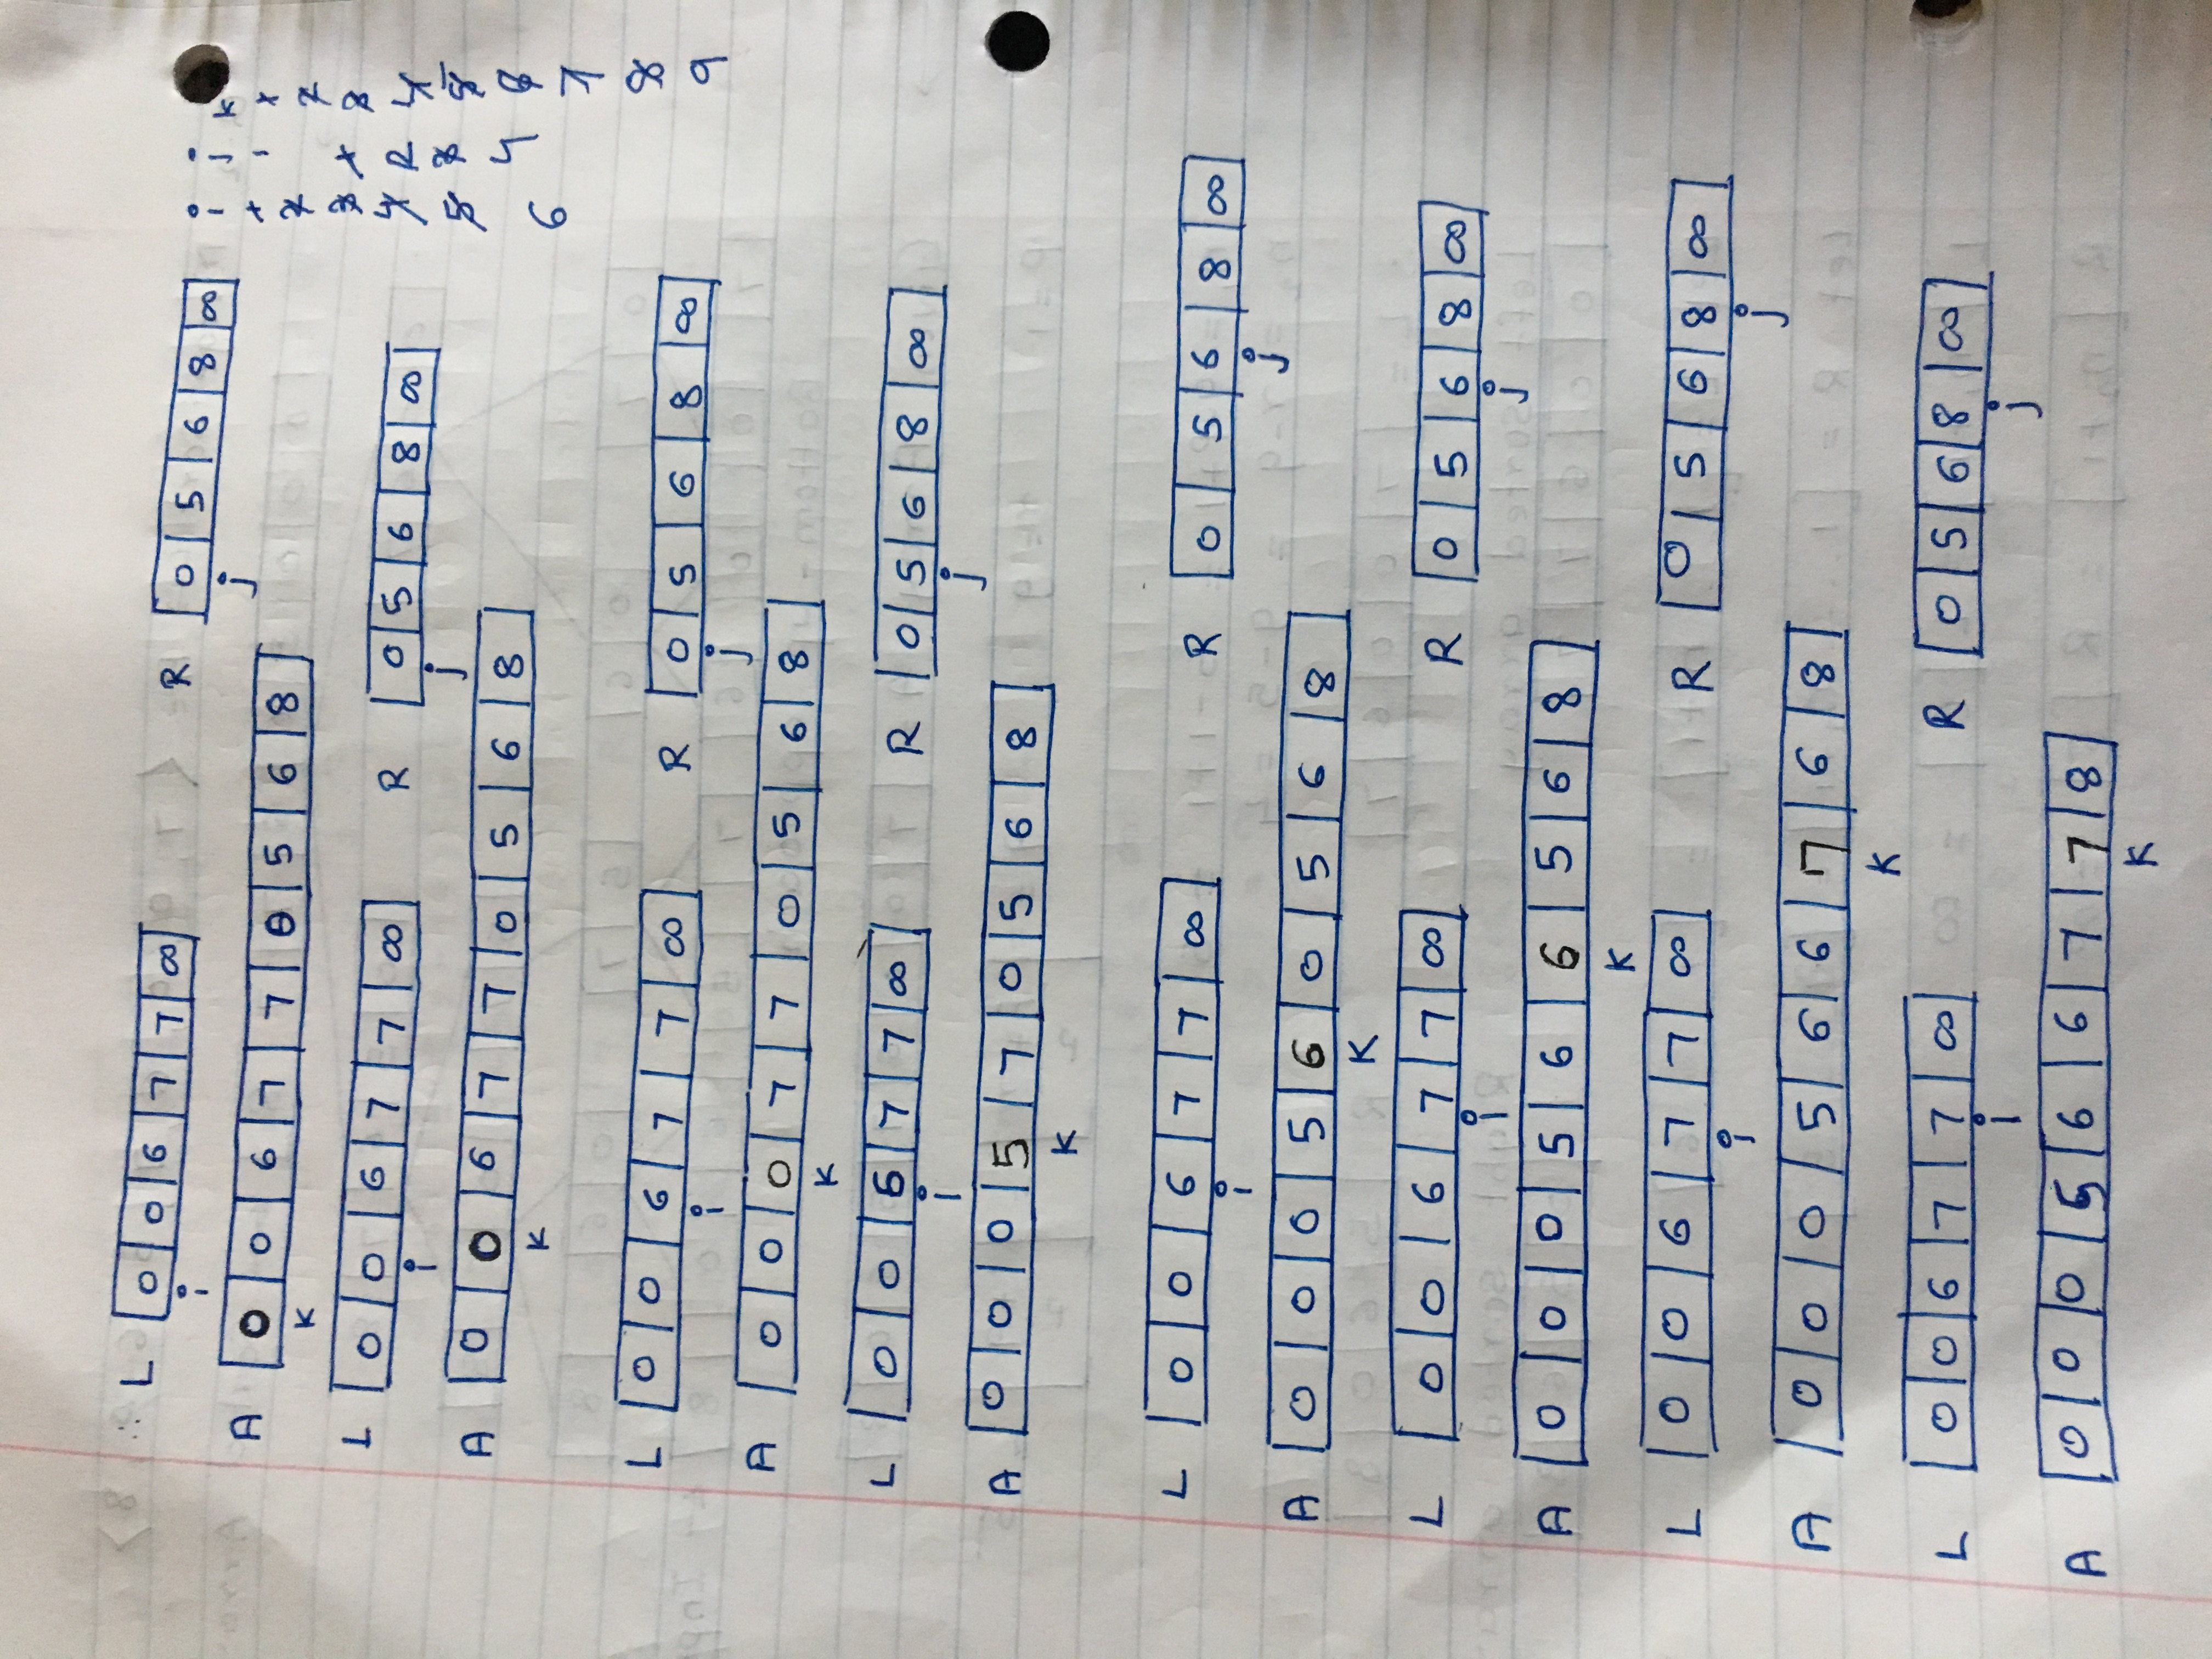 ∴ L 0 0 6 7 7 ∞ R 0 5 6 8 ∞
i j
A 0 0 6 7 7 0 5 6 8
k
L 0 0 6 7 7 ∞ R 0 5 6 8 ∞
i j
A 0 0 6 7 7 0 5 6 8
k
L 0 0 6 7 7 ∞ R 0 5 6 8 ∞
i j
A 0 0 0 7 7 0 5 6 8
k
L 0 0 6 7 7 ∞ R 0 5 6 8 ∞
i j
A 0 0 0 5 7 0 5 6 8
k
L 0 0 6 7 7 ∞ R 0 5 6 8 ∞
i j
A 0 0 0 5 6 0 5 6 8
k
L 0 0 6 7 7 ∞ R 0 5 6 8 ∞
i j
A 0 0 0 5 6 6 5 6 8
k
L 0 0 6 7 7 ∞ R 0 5 6 8 ∞
i j
A 0 0 0 5 6 6 7 6 8
k
L 0 0 6 7 7 ∞ R 0 5 6 8 ∞
i j
A 0 0 0 5 6 6 7 7 8
k
i j k
4 2 4
5 3 5
4 6
6 7
8
9